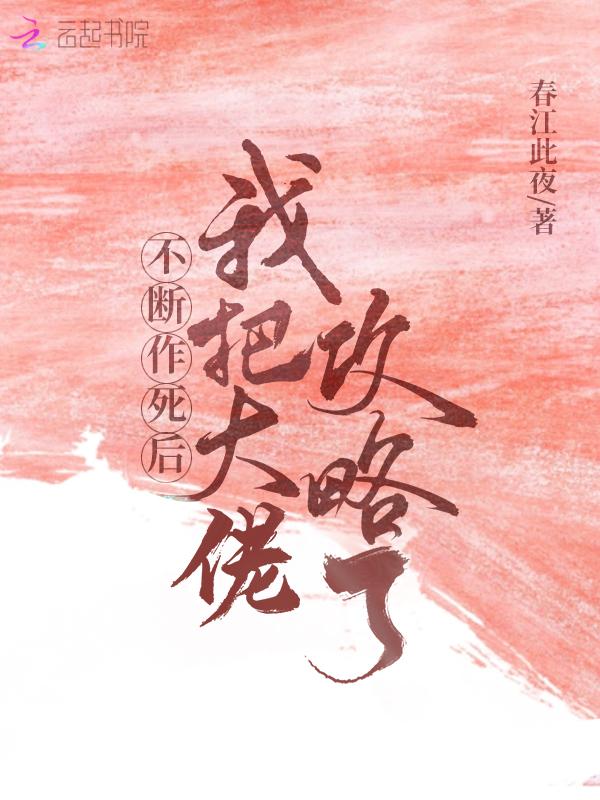 云起书院
春江此夜/著
不断作死后
我把大佬
攻略了